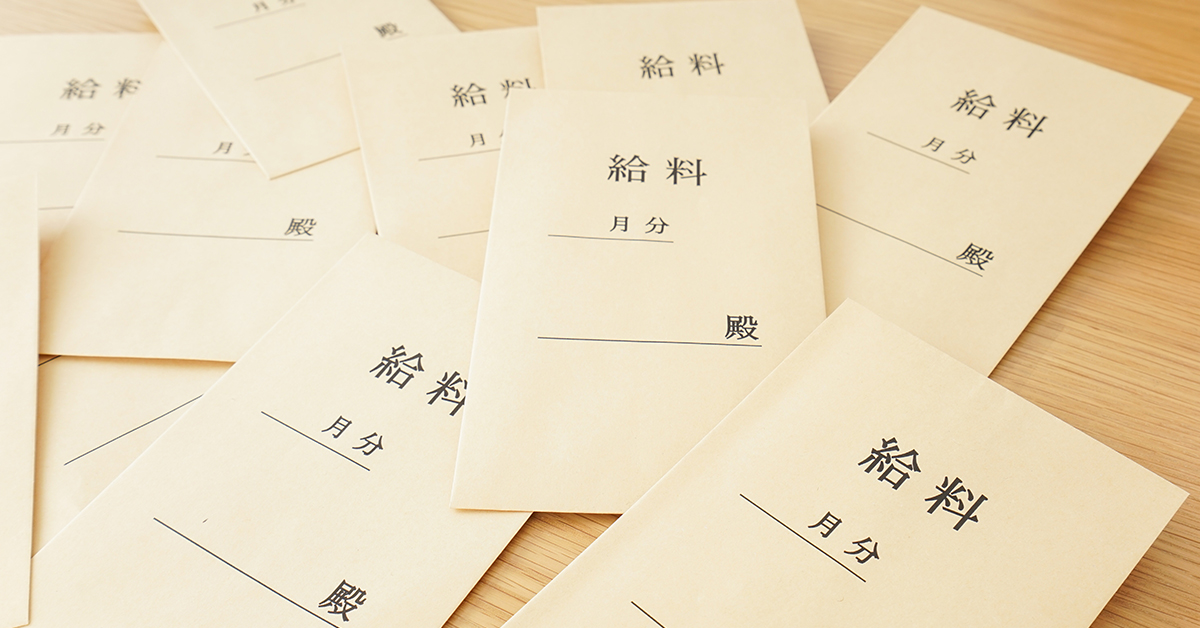 給料
月分
月分
殿
月
殿
給料
月
給料
給料
月分
殿
給料
月分
殿
給料
月分
殿
給料
月分